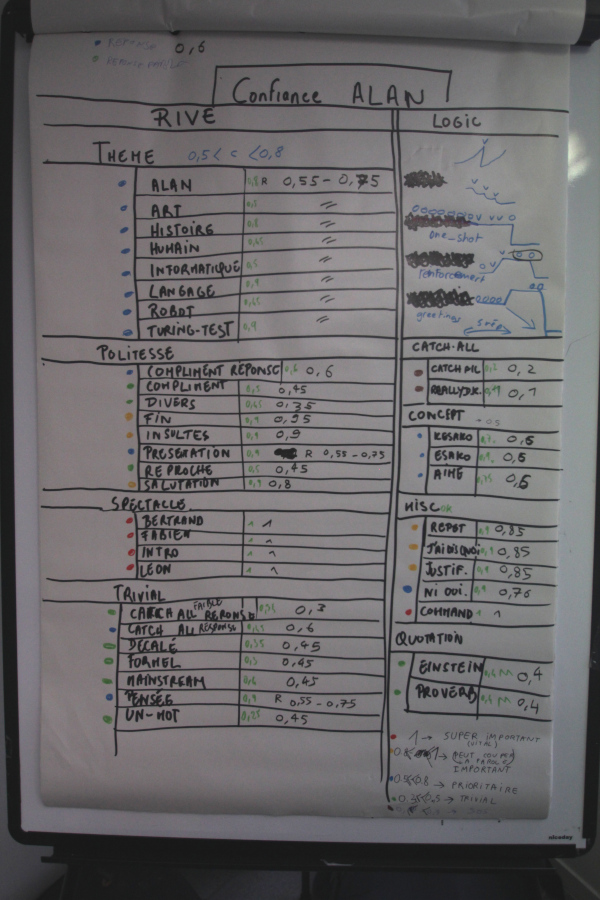 REPONSE 0,6
Confiance ALAN
RIVE
THEME 0,5 < c < 0,8
ALAN 0,8 R 0,55 - 0,75
ART 0,5 "
HISTOIRE 0,8 "
HUMAIN 0,65 "
INFORMATIQUE 0,5 "
LANGAGE 0,9 "
ROBOT 0,65 "
TURING-TEST 0,9 "
POLITESSE
COMPLIMENT REPONSE 0,6
COMPLIMENT 0,5 0,45
DIVERS 0,65 0,35
FIN 0,9 0,95
INSULTES 0,9 0,9
PRESENTATION 0,9 R 0,55 - 0,75
REPROCHE 0,5 0,45
SALUTATION 0,9 0,8
SPECTACLE
BERTRAND 1 1
FABIEN 1 1
INTRO 1 1
LEON 1 1
TRIVIAL
CATCH ALL FAIBLE REPONSE 0,3
CATCH ALL RESPONSE 0,6
DECALÉ 0,35 0,45
FORMEL 0,5 0,45
MAINSTREAM 0,6 0,45
PENSÉE 0,9 R 0,55 - 0,75
UN-MOT 0,25 0,45
LOGIC
one_shot
renforcement
greetings
CATCH-ALL
CATCH ALL 0,2 0,2
REALLYDK. 0,1
CONCEPT
KESAKO 0,6
ESAKO 0,9 0,6
AIME 0,75 0,6
MISC OK
REPET 0,9 0,85
J'AIDISQUOI 0,9 0,85
JUSTIF. 0,9 0,85
NI OUI. 0,9 0,76
COMMAND 1 1
QUOTATION
EINSTEIN 0,4
PROVERB 0,4
1 → SUPER IMPORTANT
(VITAL)
→ PEUT COUPER
LA PAROLE
IMPORTANT
0,5<0,8 → PRIORITAIRE
0,35<0,5 → TRIVIAL
nobo